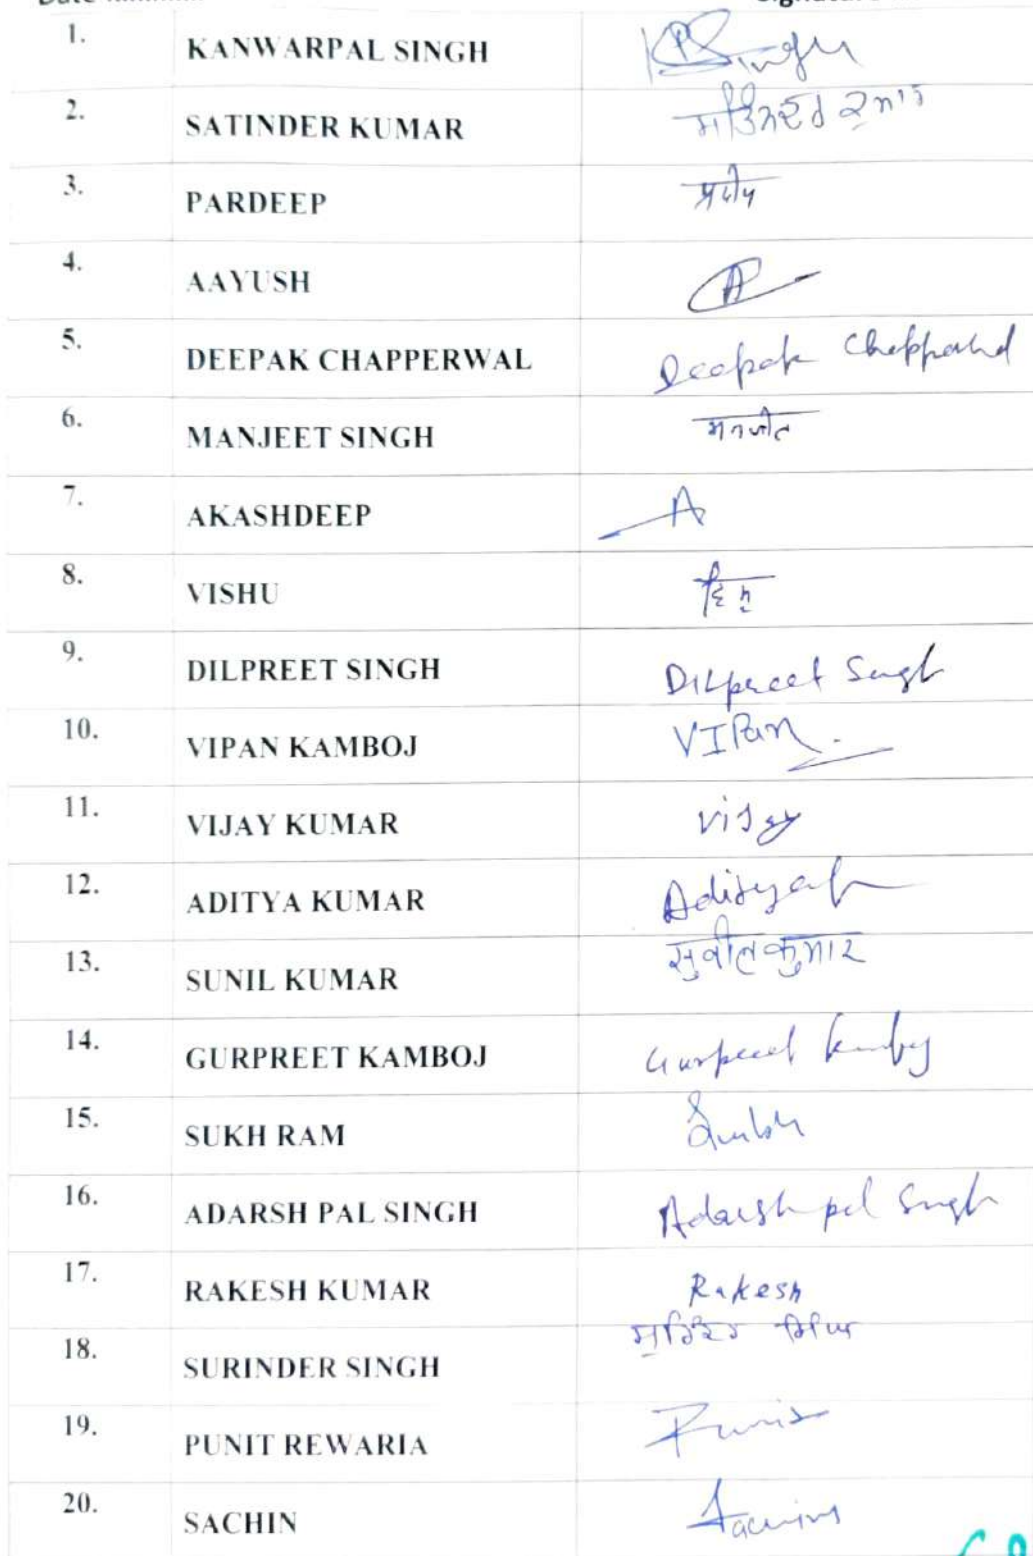 1. KANWARPAL SINGH KPSingh
2. SATINDER KUMAR ਸਤਿੰਦਰ ਕੁਮਾਰ
3. PARDEEP प्रदीप
4. AAYUSH A
5. DEEPAK CHAPPERWAL Deepak
6. MANJEET SINGH मनजीत
7. AKASHDEEP A
8. VISHU ਵਿਸ਼ੂ
9. DILPREET SINGH DILpreet Singh
10. VIPAN KAMBOJ VIPan
11. VIJAY KUMAR Vijay
12. ADITYA KUMAR Aditya
13. SUNIL KUMAR सुनील कुमार
14. GURPREET KAMBOJ Gurpreet Kamboj
15. SUKH RAM
16. ADARSH PAL SINGH Adarsh pal Singh
17. RAKESH KUMAR Rakesh
18. SURINDER SINGH ਸੁਰਿੰਦਰ ਸਿੰਘ
19. PUNIT REWARIA Punit
20. SACHIN Sachin